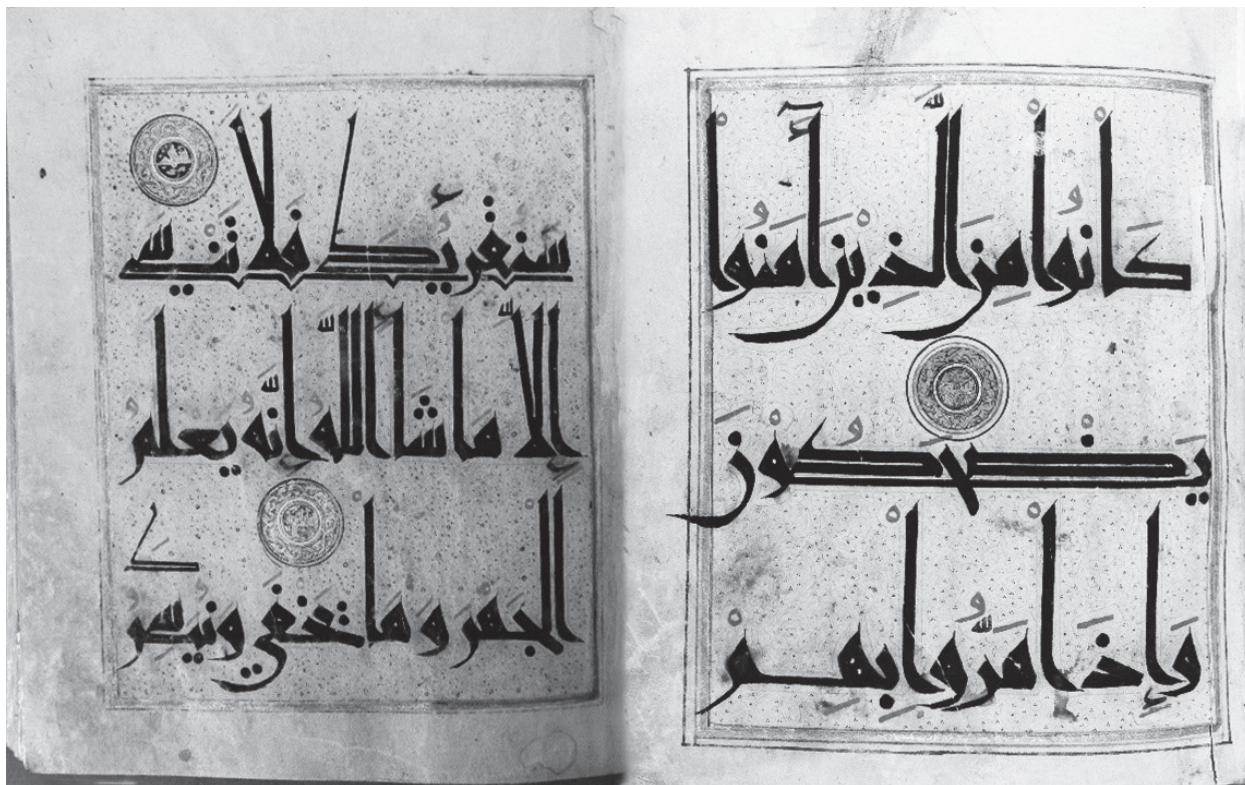 كَانُوا مِنَ الَّذِينَ آمَنُوا
يَضْحَكُونَ
وَإِذَا مَرُّوا بِهِمْ
سَنُقْرِئُكَ فَلَا تَنْسَى
إِلَّا مَا شَاءَ اللَّهُ إِنَّهُ يَعْلَمُ
الْجَهْرَ وَمَا يَخْفَى وَنُيَسِّرُكَ